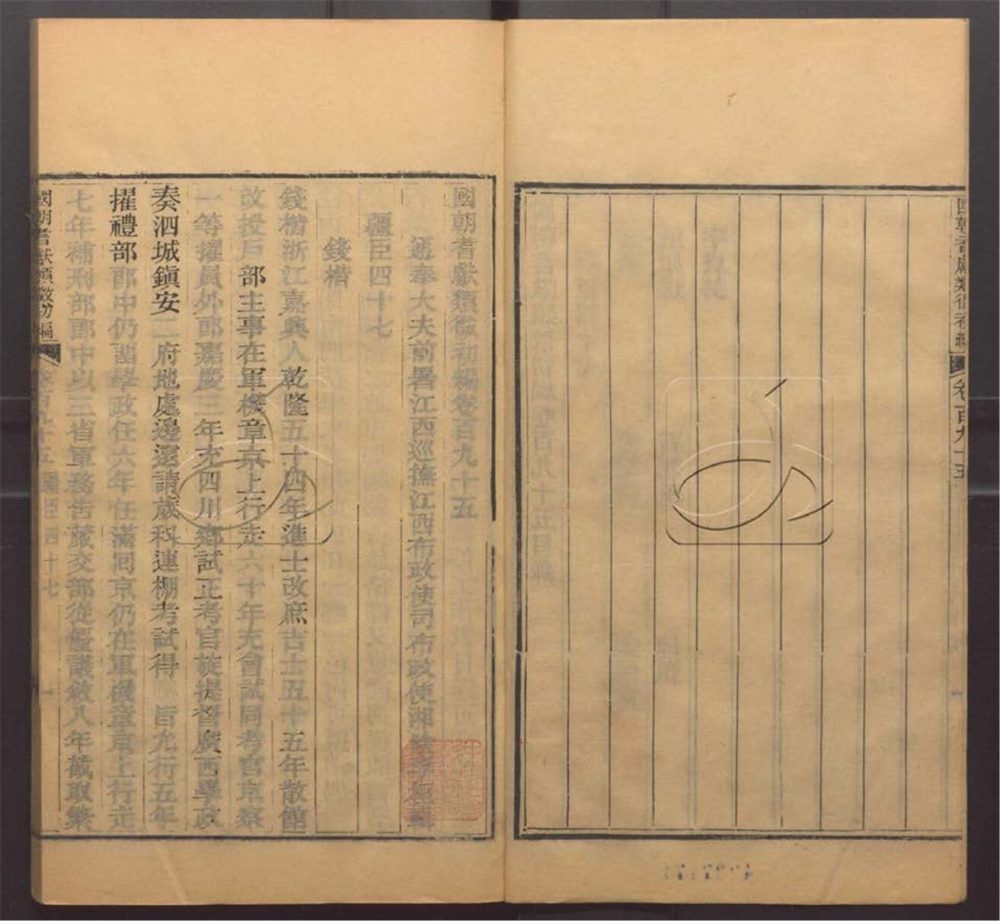 國朝耆獻類徵初編 卷一百九十五
國朝耆獻類徵初編卷百九十五
通奉大夫前署江西巡撫江西布政使司布政使湘陰李桓輯
疆臣四十七
錢楷
錢楷浙江嘉興人乾隆五十四年進士改庶吉士五十五年散館
改授戶部主事在軍機章京上行走六十年充會試同考官京察
一等擢員外郎嘉慶三年充四川鄉試正考官旋提督廣西學政
奏泗城鎮安二府地處邊遠請歲科連棚考試得 旨允行五年
擢禮部郎中仍留學政任六年任滿回京仍在軍機章京上行走
七年補刑部郎中以三省軍務告蕆交部從優議敘八年截取繁
國朝耆獻類徵初編 卷百九十五 疆臣四十七 一